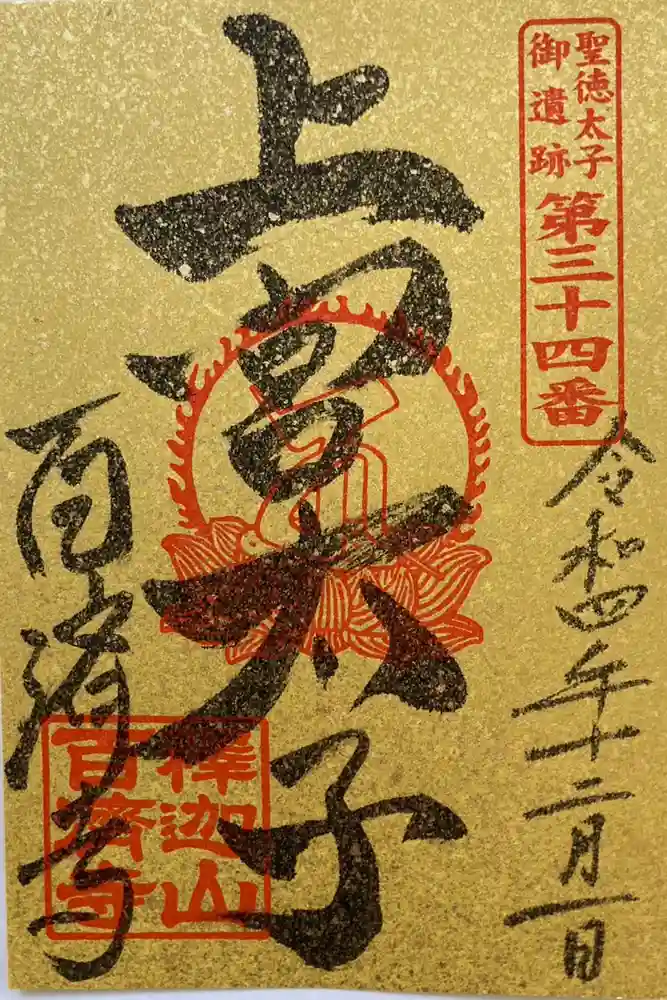 聖徳太子
御遺跡
第三十四番
令和四年十二月一日
上宮太子
百済寺
釋迦山
百濟寺